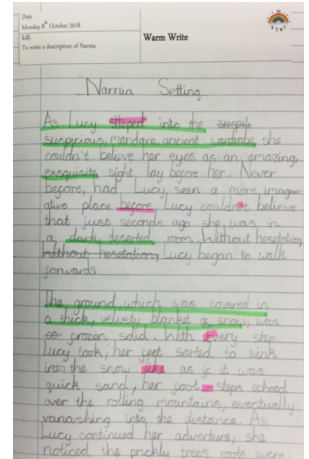 Date
Monday 8th October 2018
L.O.
To write a description of Narnia
Warm Write
Narnia Setting
As Lucy stoped into the suspili
suspicious, mandane, ancient wardrobe she
couldn't believe her eyes as an amazing,
exsquisite sight lay before her. Never
before, had Lucy seen a more, imagin
ative place before. Lucy couldn't believe
that just seconds ago she was in
a dark, deserted room. Without hesetation,
Without hesetation, Lucy began to walk
forwards.
The ground, which was covered in
a thick, velvety blanket of snow, was
frozen, solid. With every step
Lucy took, her feet sarted to sink
into the snow like as if it was
quick sand; her foot-steps echoed
over the rolling mountains, eventually
vanashing into the distance. As
Lucy continued her adventure, she
noticed the prickly trees roots were